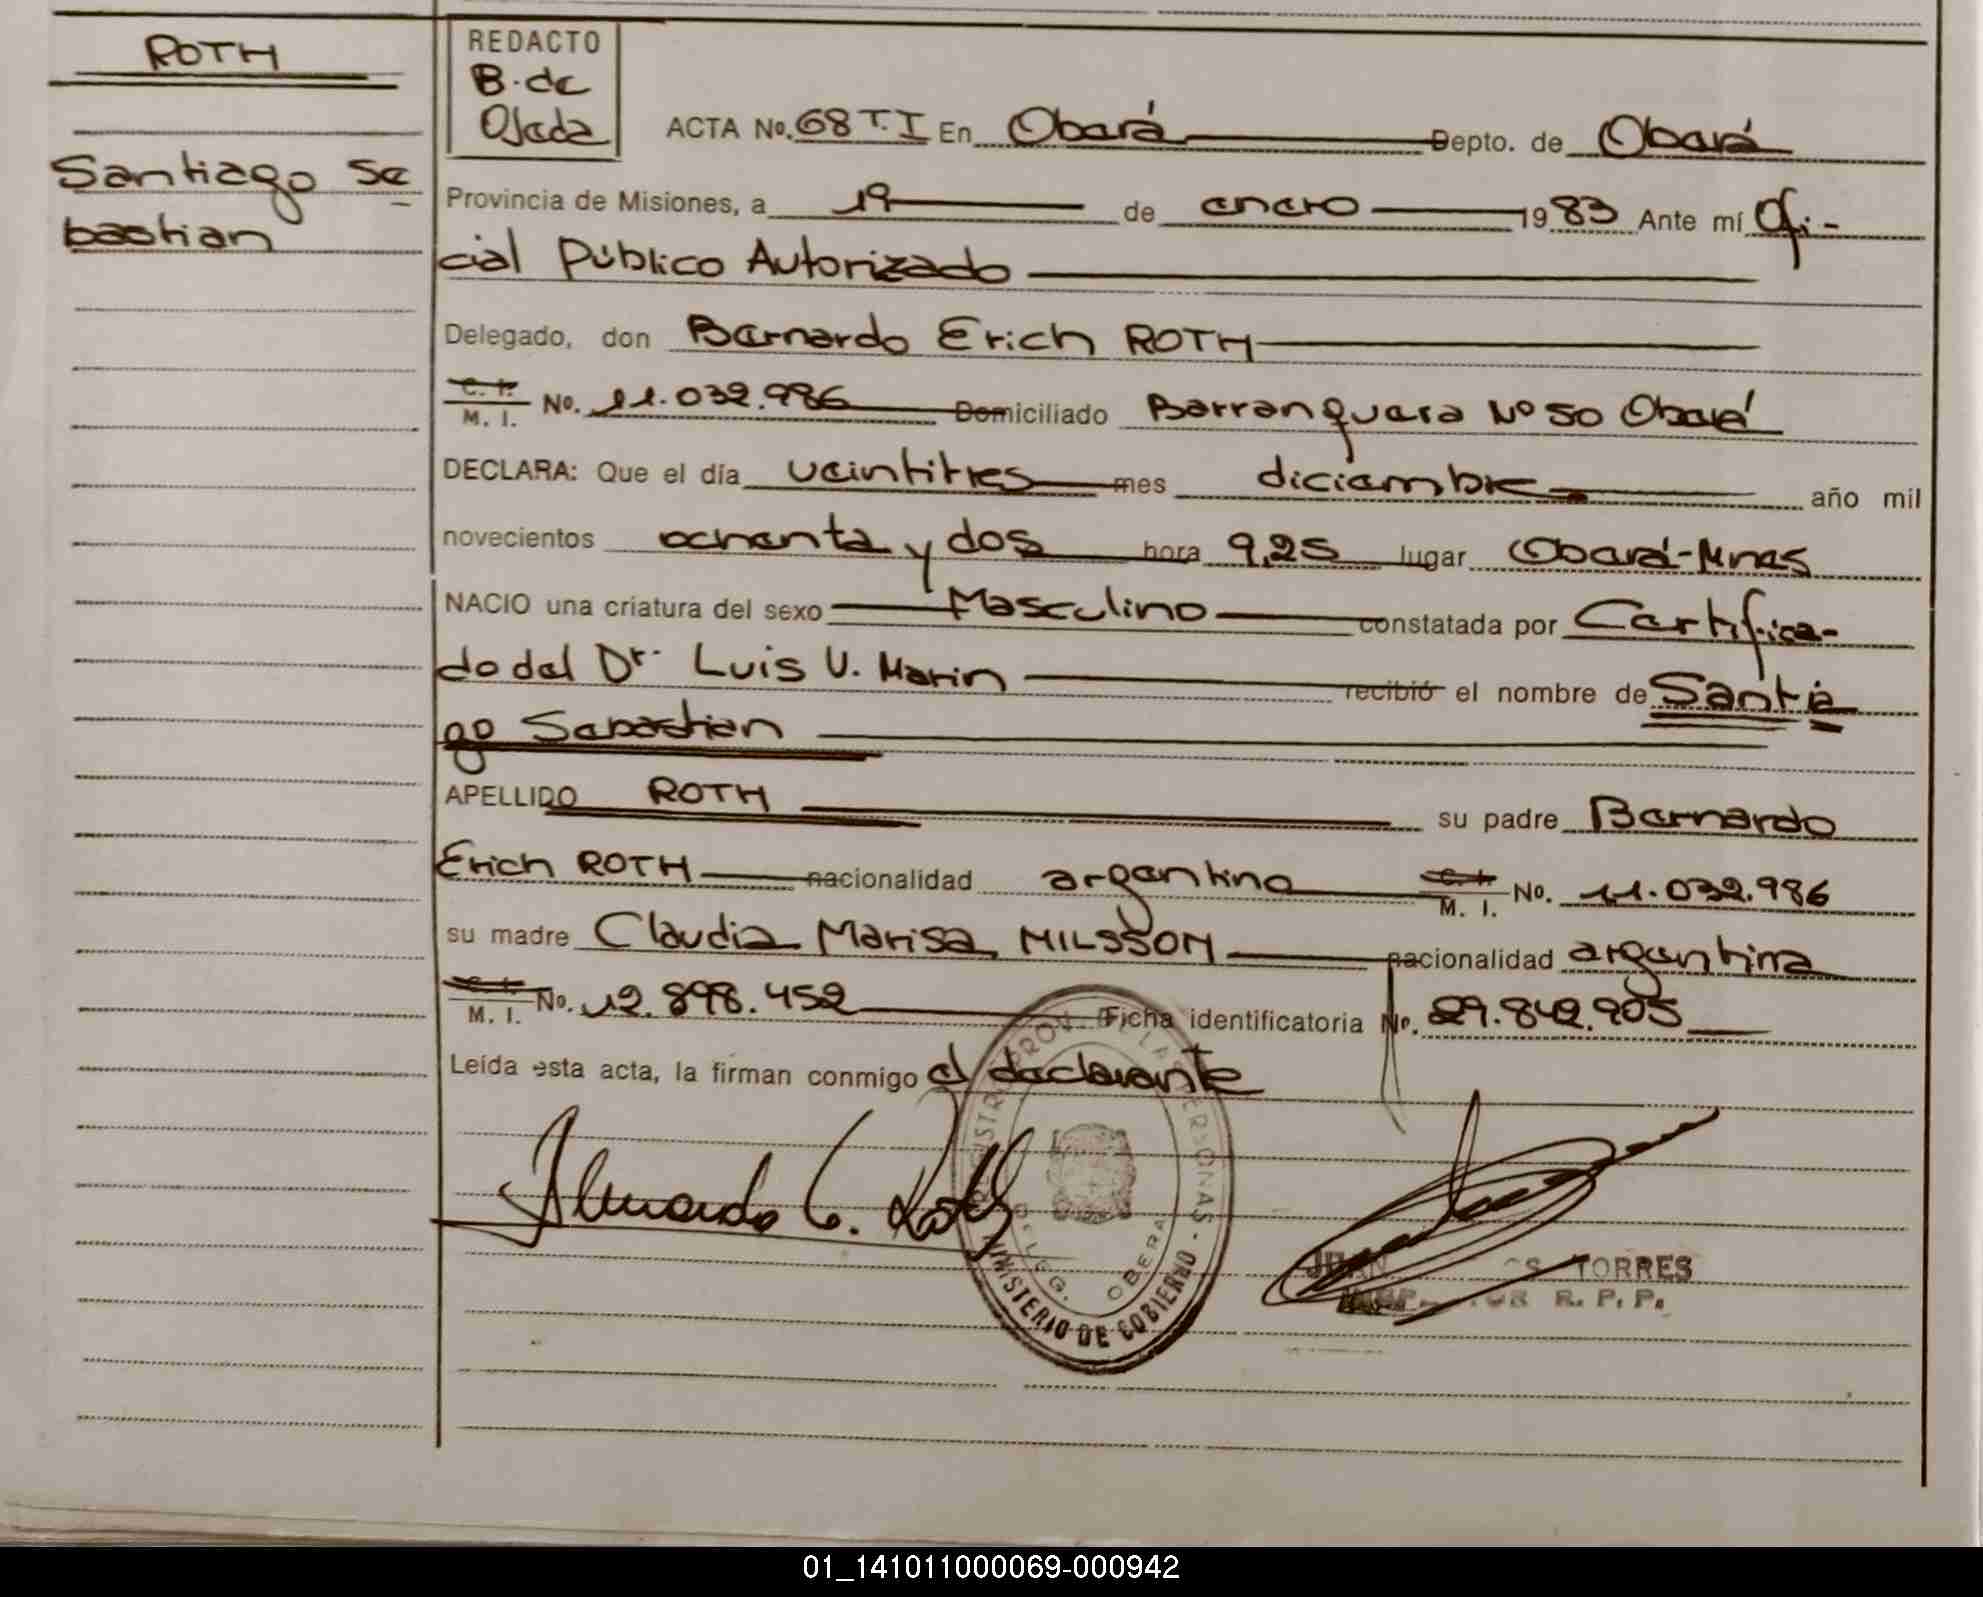 ROTH
Santiago Se
bastian
REDACTO
B. de
Ojeda
ACTA No. 68 T. I En Oberá Depto. de Oberá
Provincia de Misiones, a 19 de enero 1983 Ante mí Ofi-
cial Público Autorizado
Delegado, don Bernardo Erich ROTH
C. I.
M. I. No. 11.032.986 Domiciliado Barranquera Nº 50 Oberá
DECLARA: Que el día veintitres mes diciembre año mil
novecientos ochenta y dos hora 9,25 lugar Oberá-Mnes
NACIO una criatura del sexo Masculino constatada por Certifica-
do del Dr. Luis V. Marin recibió el nombre de Santia
go Sebastian
APELLIDO ROTH su padre Bernardo
Erich ROTH nacionalidad argentino C. I.
M. I. No. 11.032.986
su madre Claudia Marisa NILSSON nacionalidad argentina
C. I.
M. I. No. 12.898.452 Ficha identificatoria No. 29.842.905
Leída esta acta, la firman conmigo el declarante
Bernardo E. Roth
REGISTRO PROV. DE LAS PERSONAS -
DELEG. OBERA
MINISTERIO DE GOBIERNO
JUAN TORRES
R. P. P.
01_141011000069-000942